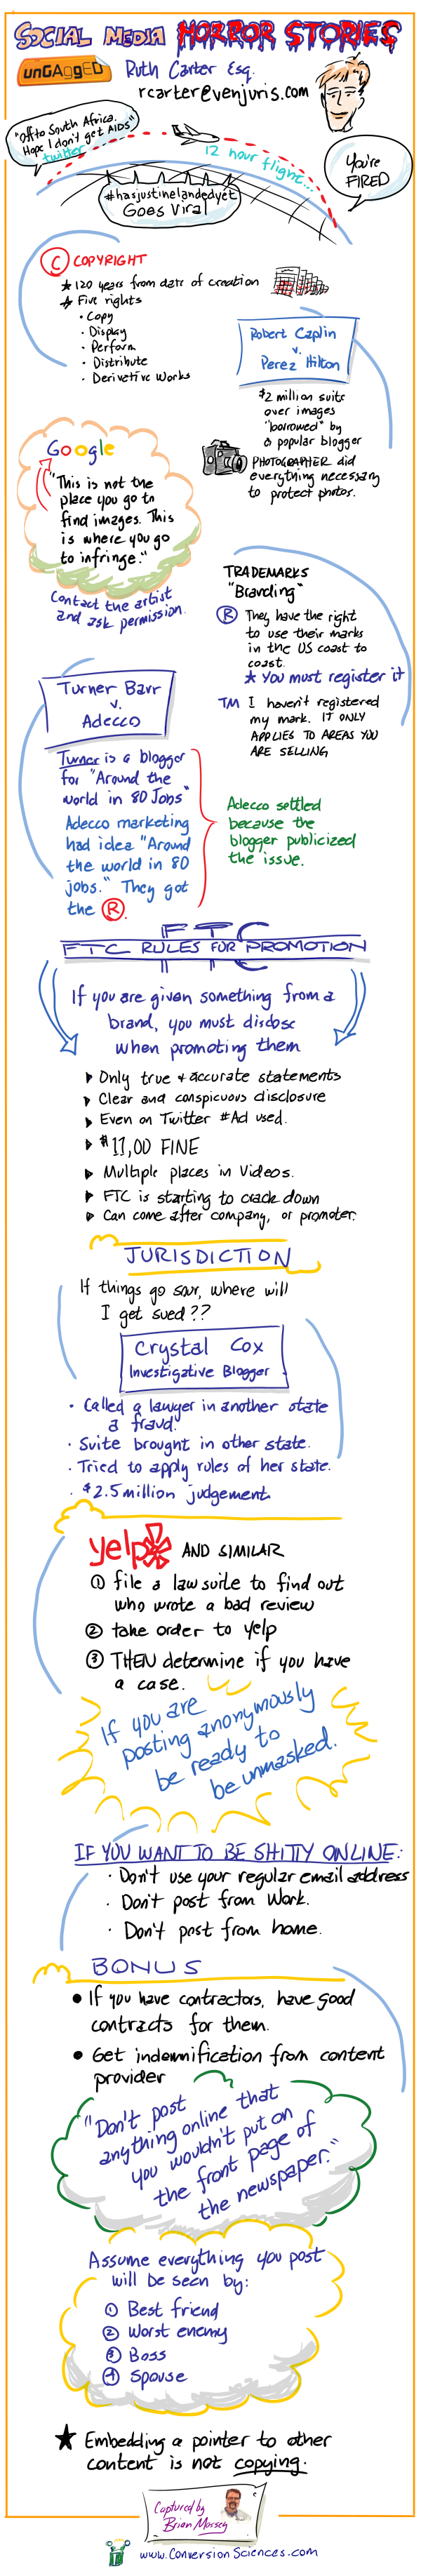 SOCIAL MEDIA HORROR STORIES
unGAggED
Ruth Carter Esq.
rcarter@venjuris.com
"Off to South Africa.
Hope I don't get AIDS"
twitter
12 hour flight...
You're
FIRED
#hasjustinelandedyet
Goes Viral
C COPYRIGHT
★ 120 years from date of creation
★ Five rights
• Copy
• Display
• Perform
• Distribute
• Derivetive Works
Robert Caplin
v.
Perez Hilton
$2 million suite
over images
"borrowed" by
a popular blogger
PHOTOGRAPHER did
everything necessary
to protect photos.
Google
"This is not the
place you go to
find images. This
is where you go
to infringe."
Contact the artist
and ask permission.
TRADEMARKS
"Branding"
® They have the right
to use their marks
in the US coast to
coast.
★ You must register it
TM I haven't registered
my mark. IT ONLY
APPLIES TO AREAS YOU
ARE SELLING
Turner Barr
v.
Adecco
Turner is a blogger
for "Around the
world in 80 Jobs"
Adecco marketing
had idea "Around
the world in 80
jobs." They got
the ®.
Adecco settled
because the
blogger publicized
the issue.
FTC
FTC RULES FOR PROMOTION
If you are given something from a
brand, you must disclose
when promoting them
▶ Only true + accurate statements
▶ Clear and conspicuous disclosure
▶ Even on Twitter #Ad used.
▶ $11,00 FINE
▶ Multiple places in Videos.
▶ FTC is starting to crack down
▶ Can come after company, or promoter.
JURISDICTION
If things go sour, where will
I get sued??
Crystal Cox
Investigative Blogger
• Called a lawyer in another state
a fraud.
• Suite brought in other state.
• Tried to apply rules of her state.
• $2.5 million judgement
yelp AND SIMILAR
① file a law suite to find out
who wrote a bad review
② take order to yelp
③ THEN determine if you have
a case.
If you are
posting anonymously
be ready to
be unmasked.
IF YOU WANT TO BE SHITTY ONLINE:
• Don't use your regular email address
• Don't post from Work.
• Don't post from home.
BONUS
• If you have contractors, have good
contracts for them.
• Get indemnification from content
provider
"Don't post
anything online that
you wouldn't put on
the front page of
the newspaper."
Assume everything you post
will be seen by:
① Best friend
② Worst enemy
③ Boss
④ Spouse
★ Embedding a pointer to other
content is not copying.
Captured by
Brian Massey
www.ConversionSciences.com